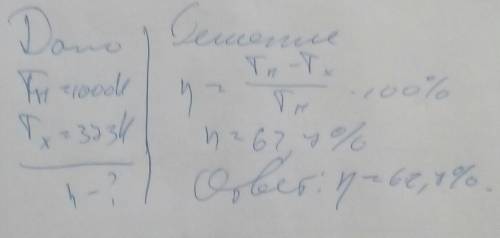 Дано
Tн = 1000K
Tх = 373K
η - ?
Решение
η = (Tн - Tх) / Tн · 100%
η = 62,7%
Ответ: η = 62,7%.